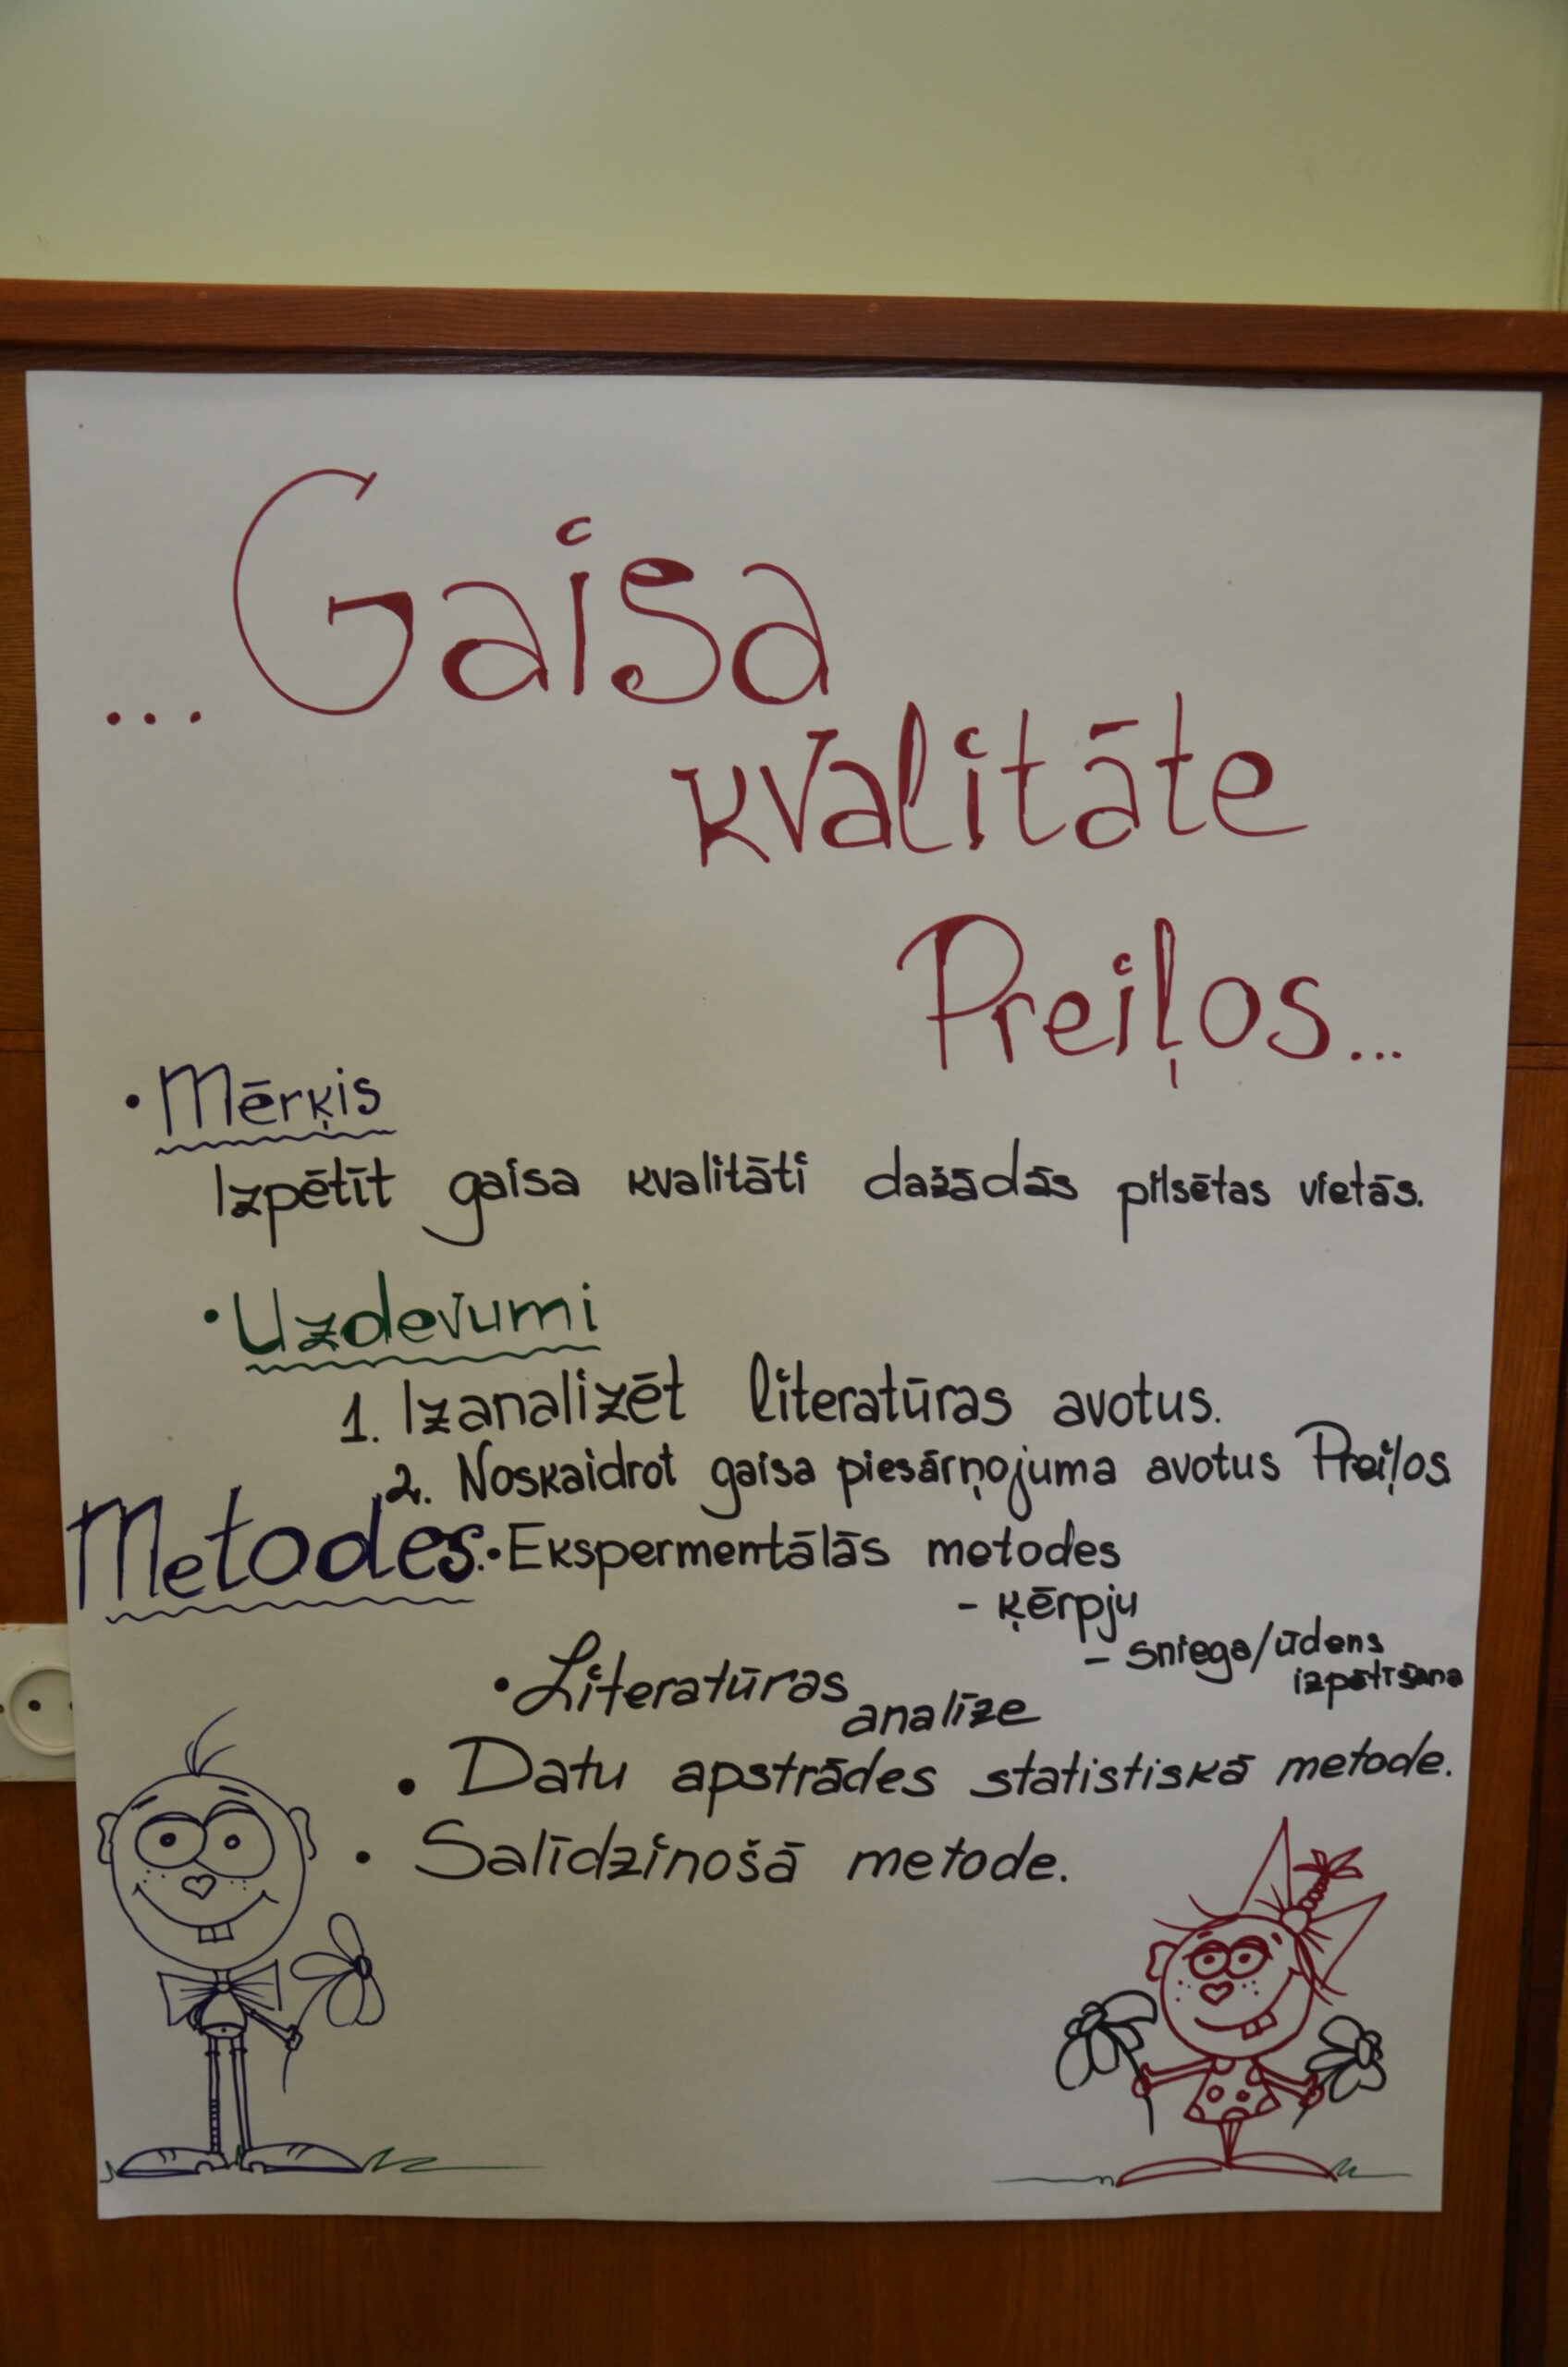 ...Gaisa
kvalitāte
Preiļos...
• Mērķis
Izpētīt gaisa kvalitāti dažādās pilsētas vietās.
• Uzdevumi
1. Izanalizēt literatūras avotus.
2. Noskaidrot gaisa piesārņojuma avotus Preiļos
Metodes: • Ekspermentālās metodes
- ķērpju
- sniega/ūdens
izpētīšana
• Literatūras
analīze
• Datu apstrādes statistiskā metode.
• Salīdzinošā metode.